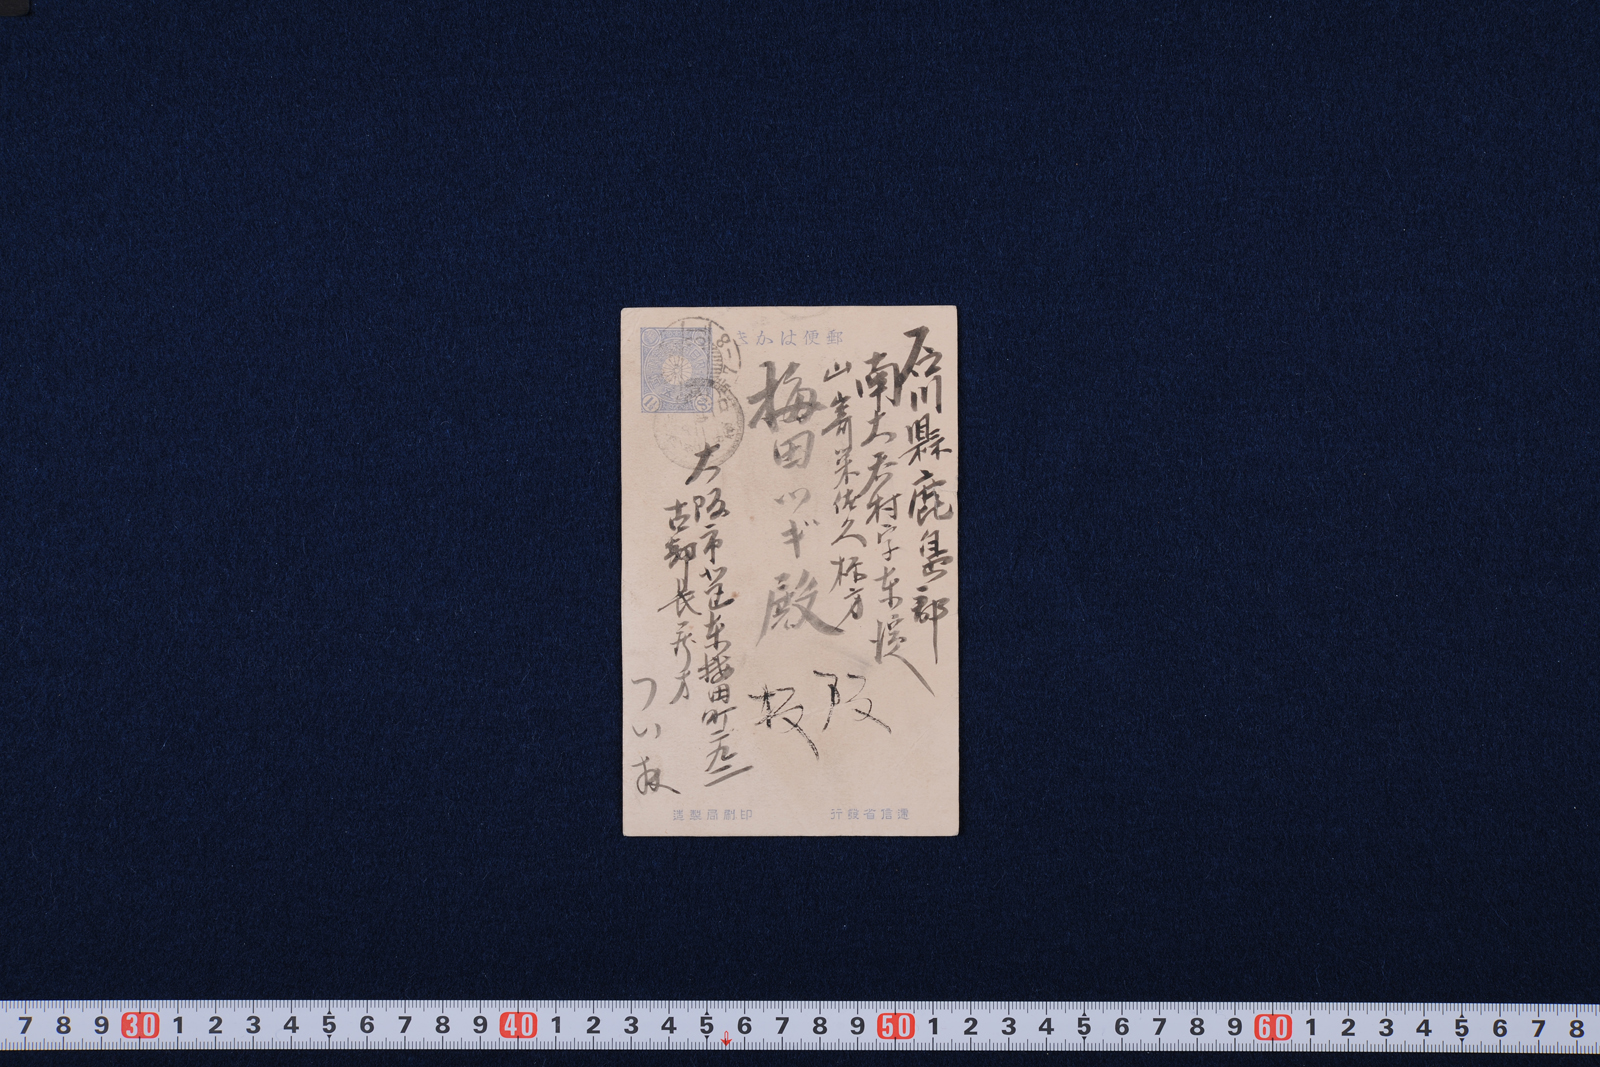 郵便はかき
石川縣鹿島郡
南大呑村字東濱
山嵜栄佐久様方
梅田ツギ殿
大阪市北区東梅田町二九二
古部長蔵方
つい
阪
遞信省發行
印刷局製造
7 8 9 30 1 2 3 4 5 6 7 8 9 40 1 2 3 4 5 6 7 8 9 50 1 2 3 4 5 6 7 8 9 60 1 2 3 4 5 6 7 8